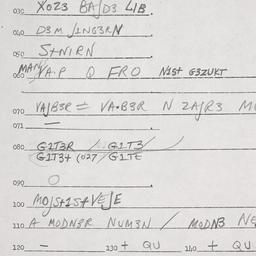 030 XOZ3 BA/D3 LIB.
040 D3M JING3RN
050 S+NIRN
060 MAN/YA·P Q FRO NIST G3ZUKT
070 VAJB3R = VA·B3R N ZAJR3 M
071 —
080 GIT3R / GIT3
GIT3+ (027 / GITE
090 O
100 MOJS+IS+VEJE
110 A MODN3R NUM3N / MODN3 NE
120 — 130 + QU 140 + QU